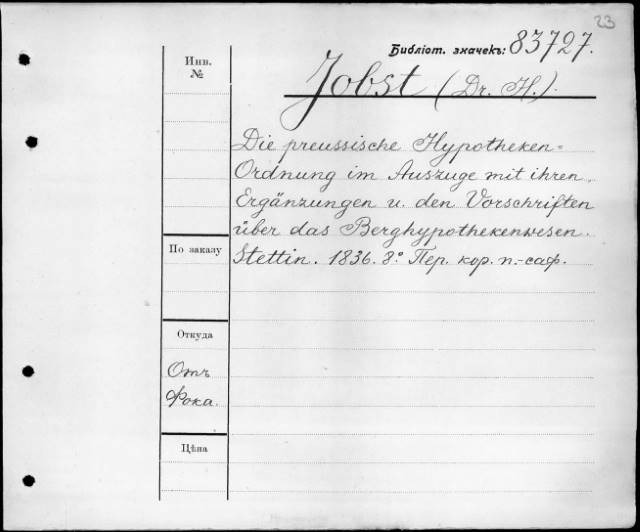 23
Библіот. значекъ: 83727.
Инв. №
Jobst (Dr. H.).
Die preussische Hypotheken-
Ordnung im Auszuge mit ihren
Ergänzungen u. den Vorschriften
über das Berghypothekenwesen.
Stettin. 1836. 8° Пер. кор. п.-саф.
По заказу
Откуда
Отъ
Фока.
Цѣна